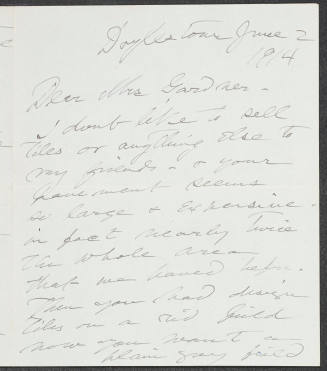 Doylestown June 2
1914
Dear Mrs Gardner -
I don't like to sell
tiles or anything else to
my friends - & your
pavement seems
so large & expensive -
in fact nearly twice
the whole area
that we paved before.
Then you had design
tiles on a red field
now you want a
plain gray field